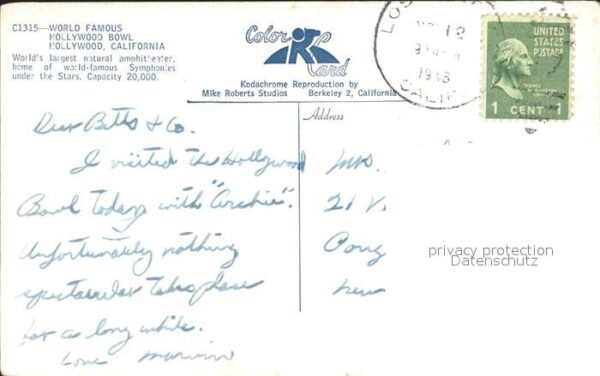 C1315—WORLD FAMOUS
HOLLYWOOD BOWL
HOLLYWOOD, CALIFORNIA
World's largest natural amphitheater,
home of world-famous Symphonies
under the Stars. Capacity 20,000.
Color Card
Kodachrome Reproduction by
Mike Roberts Studios Berkeley 2, California
LOS
12
1948
CALIF
UNITED
STATES
POSTAGE
1 CENT 1
Address
Dear Betts & Co.
I visited the Hollywood
Bowl today with "Archie".
Unfortunately nothing
spectacular takes place
for a long while.
Love Marvin
Mrs.
21 V
Poug
New
privacy protection
Datenschutz